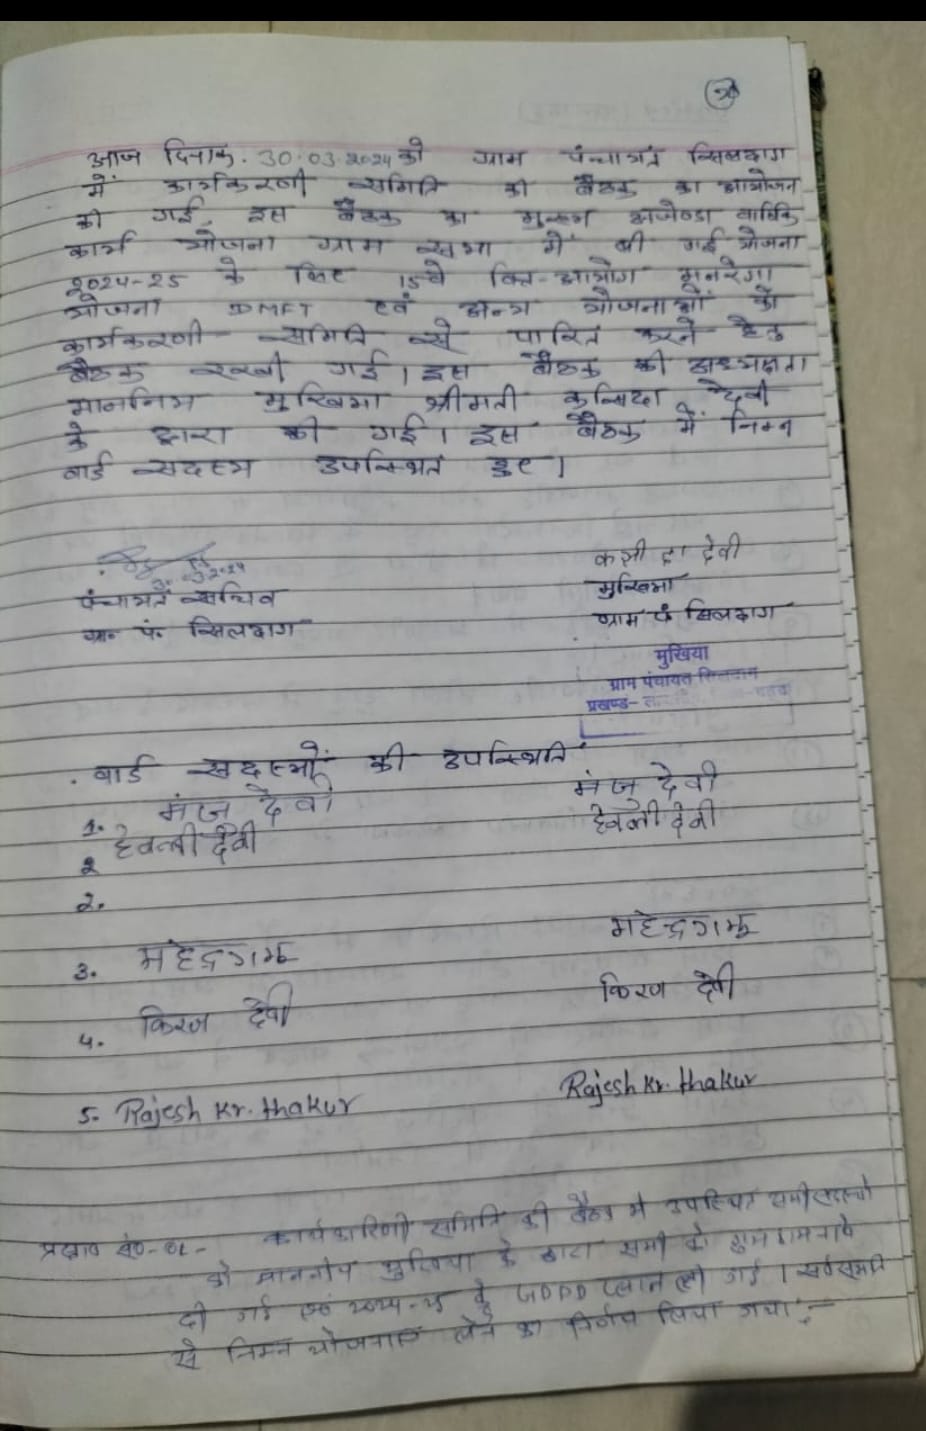 आज दिनांक. 30.03.2024 को ग्राम पंचायत सिलदाग
में कार्यकरणी समिति की बैठक का आयोजन
की गई. इस बैठक का मुख्य अजेण्डा वार्षिक
कार्य योजना ग्राम सभा में ली गई योजना
2024-25 के लिए 15वे वित-आयोग मनरेगा
योजना DMFT एवं अन्य योजनाओं को
कार्यकरणी समिति से पारित करने हेतु
बैठक रखी गई। इस बैठक की अध्यक्षता
माननिय मुखिया श्रीमती कुसिदा देवी
के द्वारा की गई। इस बैठक में निम्न
वार्ड सदस्य उपस्थित हुए।
पंचायत सचिव
ग्रा० पं. सिलदाग
कशीदा देवी
मुखिया
ग्राम पं सिलदाग
मुखिया
ग्राम पंचायत सिलदाग
प्रखण्ड-
वार्ड सदस्यों की उपस्थिति
1. मंजु देवी मंजु देवी
2 हेवन्ती देवी हेवन्ती देवी
2.
3. महेन्द्र राम महेन्द्र राम
4. किरण देवी किरण देवी
5. Rajesh Kr. thakur Rajesh Kr. thakur
प्रस्ताव सं०-01- कार्यकारिणी समिति की बैठक में उपस्थित सभी सदस्यो
को माननीय मुखिया के द्वारा सभी को शुभकामनाये
दी गई एवं 2024-25 हेतु GPDP प्लान ली गई। सर्वसम्मति
से निम्न योजनाए लेने का निर्णय लिया गया:-